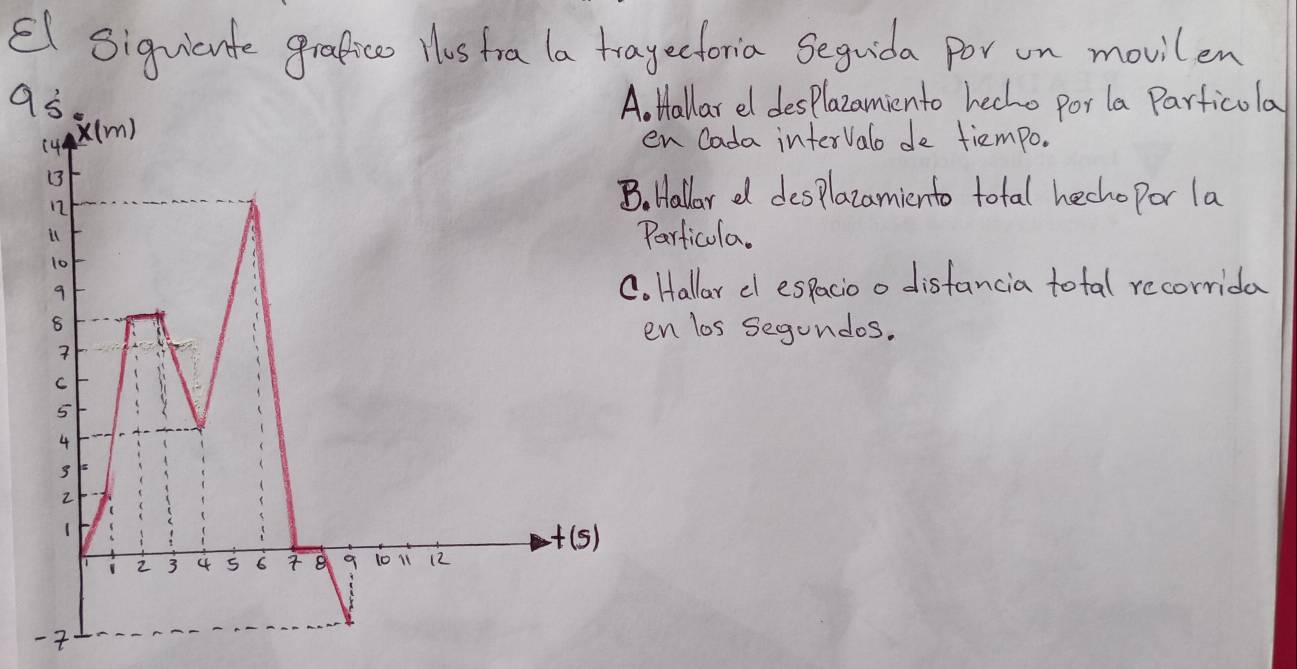 El siguiente grafico ilustra la trayectoria seguida por un movil en
9s.
A. Hallar el desplazamiento hecho por la Particula
en cada intervalo de tiempo.
B. Hallar el desplazamiento total hecho por la
Particula.
C. Hallar el espacio o distancia total recorrida
en los segundos.
x(m)
14
13
12
11
10
9
8
7
6
5
4
3
2
1
1 2 3 4 5 6 7 8 9 10 11 12
t(s)
-7